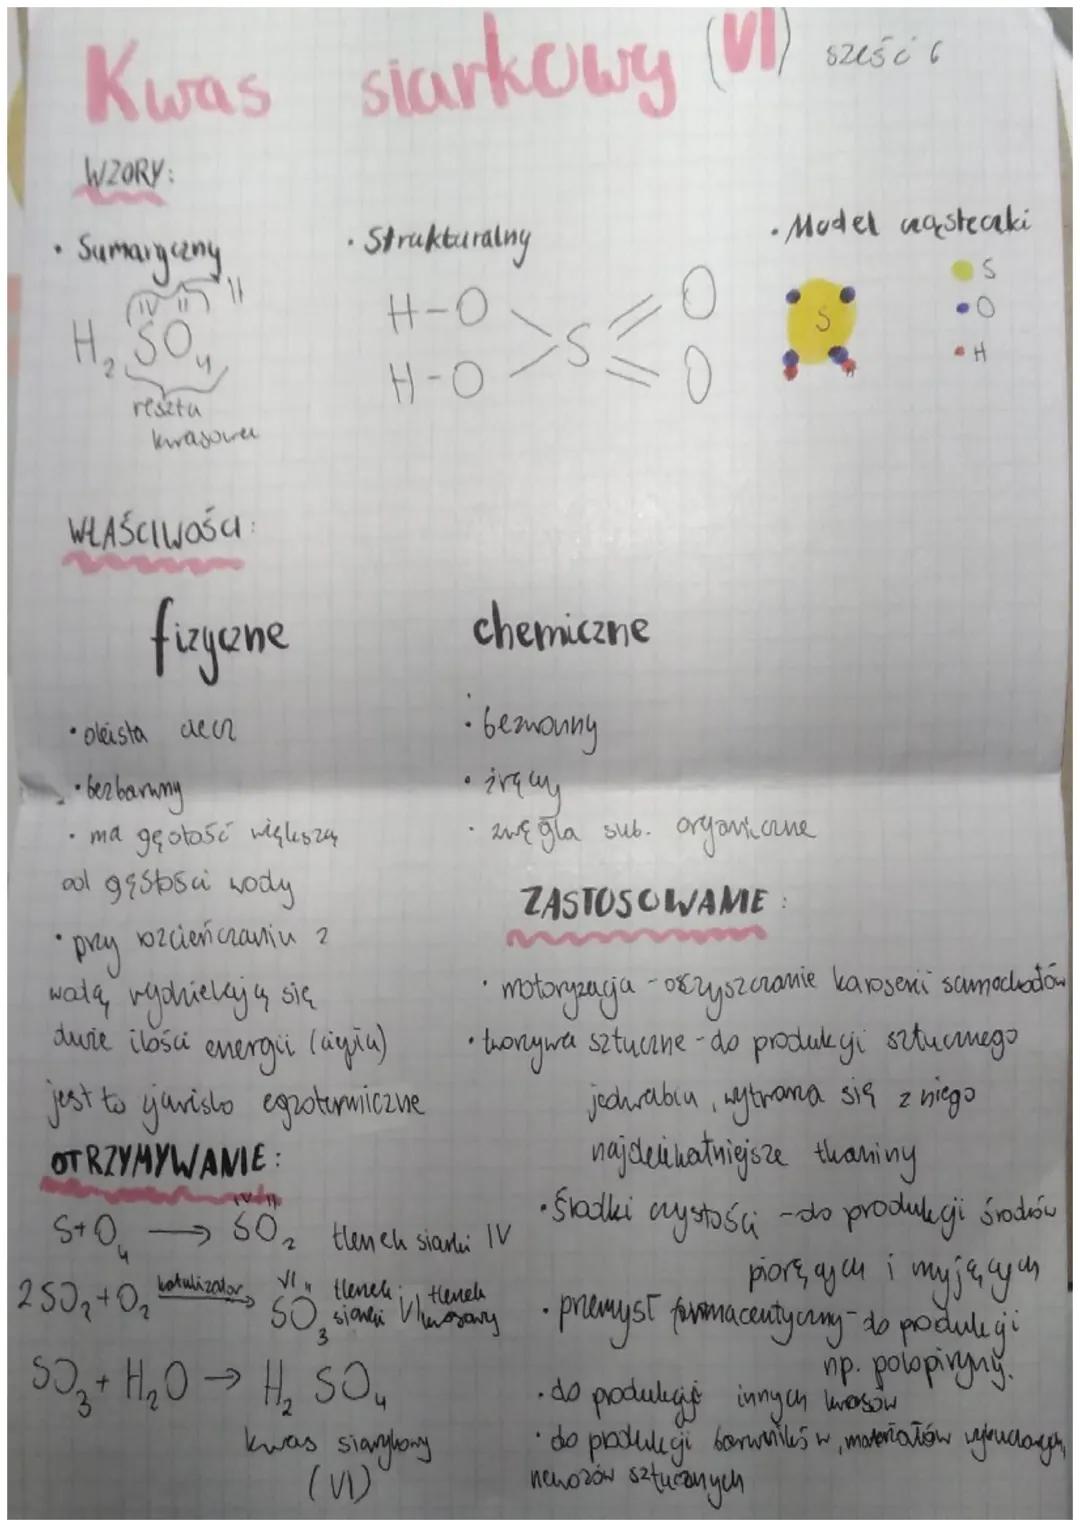 Kwas siarkowy (VI) sześć 6
WZORY:
• Sumaryczny
IV II II
H₂SO₄
reszta
kwasowa
• Strukturalny
H-O O
S
H-O O
• Model cząsteczki
S
O
H
S
H
WŁAŚCIWOŚCI:
fizyczne
• oleista ciecz
• bezbarwny
• ma gęstość większą
od gęstości wody
• przy rozcieńczaniu z
wodą wydzielają się
duże ilości energii (ciepła)
jest to zjawisko egzotermiczne
chemiczne
• bezwonny
• żrący
• zwęgla sub. organiczne
OTRZYMYWANIE:
IV II
S+O₄ → SO₂ tlenek siarki IV
2SO₂+O₂ katalizator → VI II SO₃ tlenek siarki VI tlenek kwasowy
SO₃+H₂O → H₂SO₄
kwas siarkowy
(VI)
ZASTOSOWANIE:
• motoryzacja - oczyszczanie karoserii samochodów
• tworzywa sztuczne - do produkcji sztucznego
jedwabiu, wytwarza się z niego
najdelikatniejsze tkaniny
• Środki czystości - do produkcji środków
piorących i myjących
• przemysł farmaceutyczny - do produkcji
np. polopiryny.
• do produkcji innych kwasów
• do produkcji barwników, materiałów wybuchowych,
nawozów sztucznych